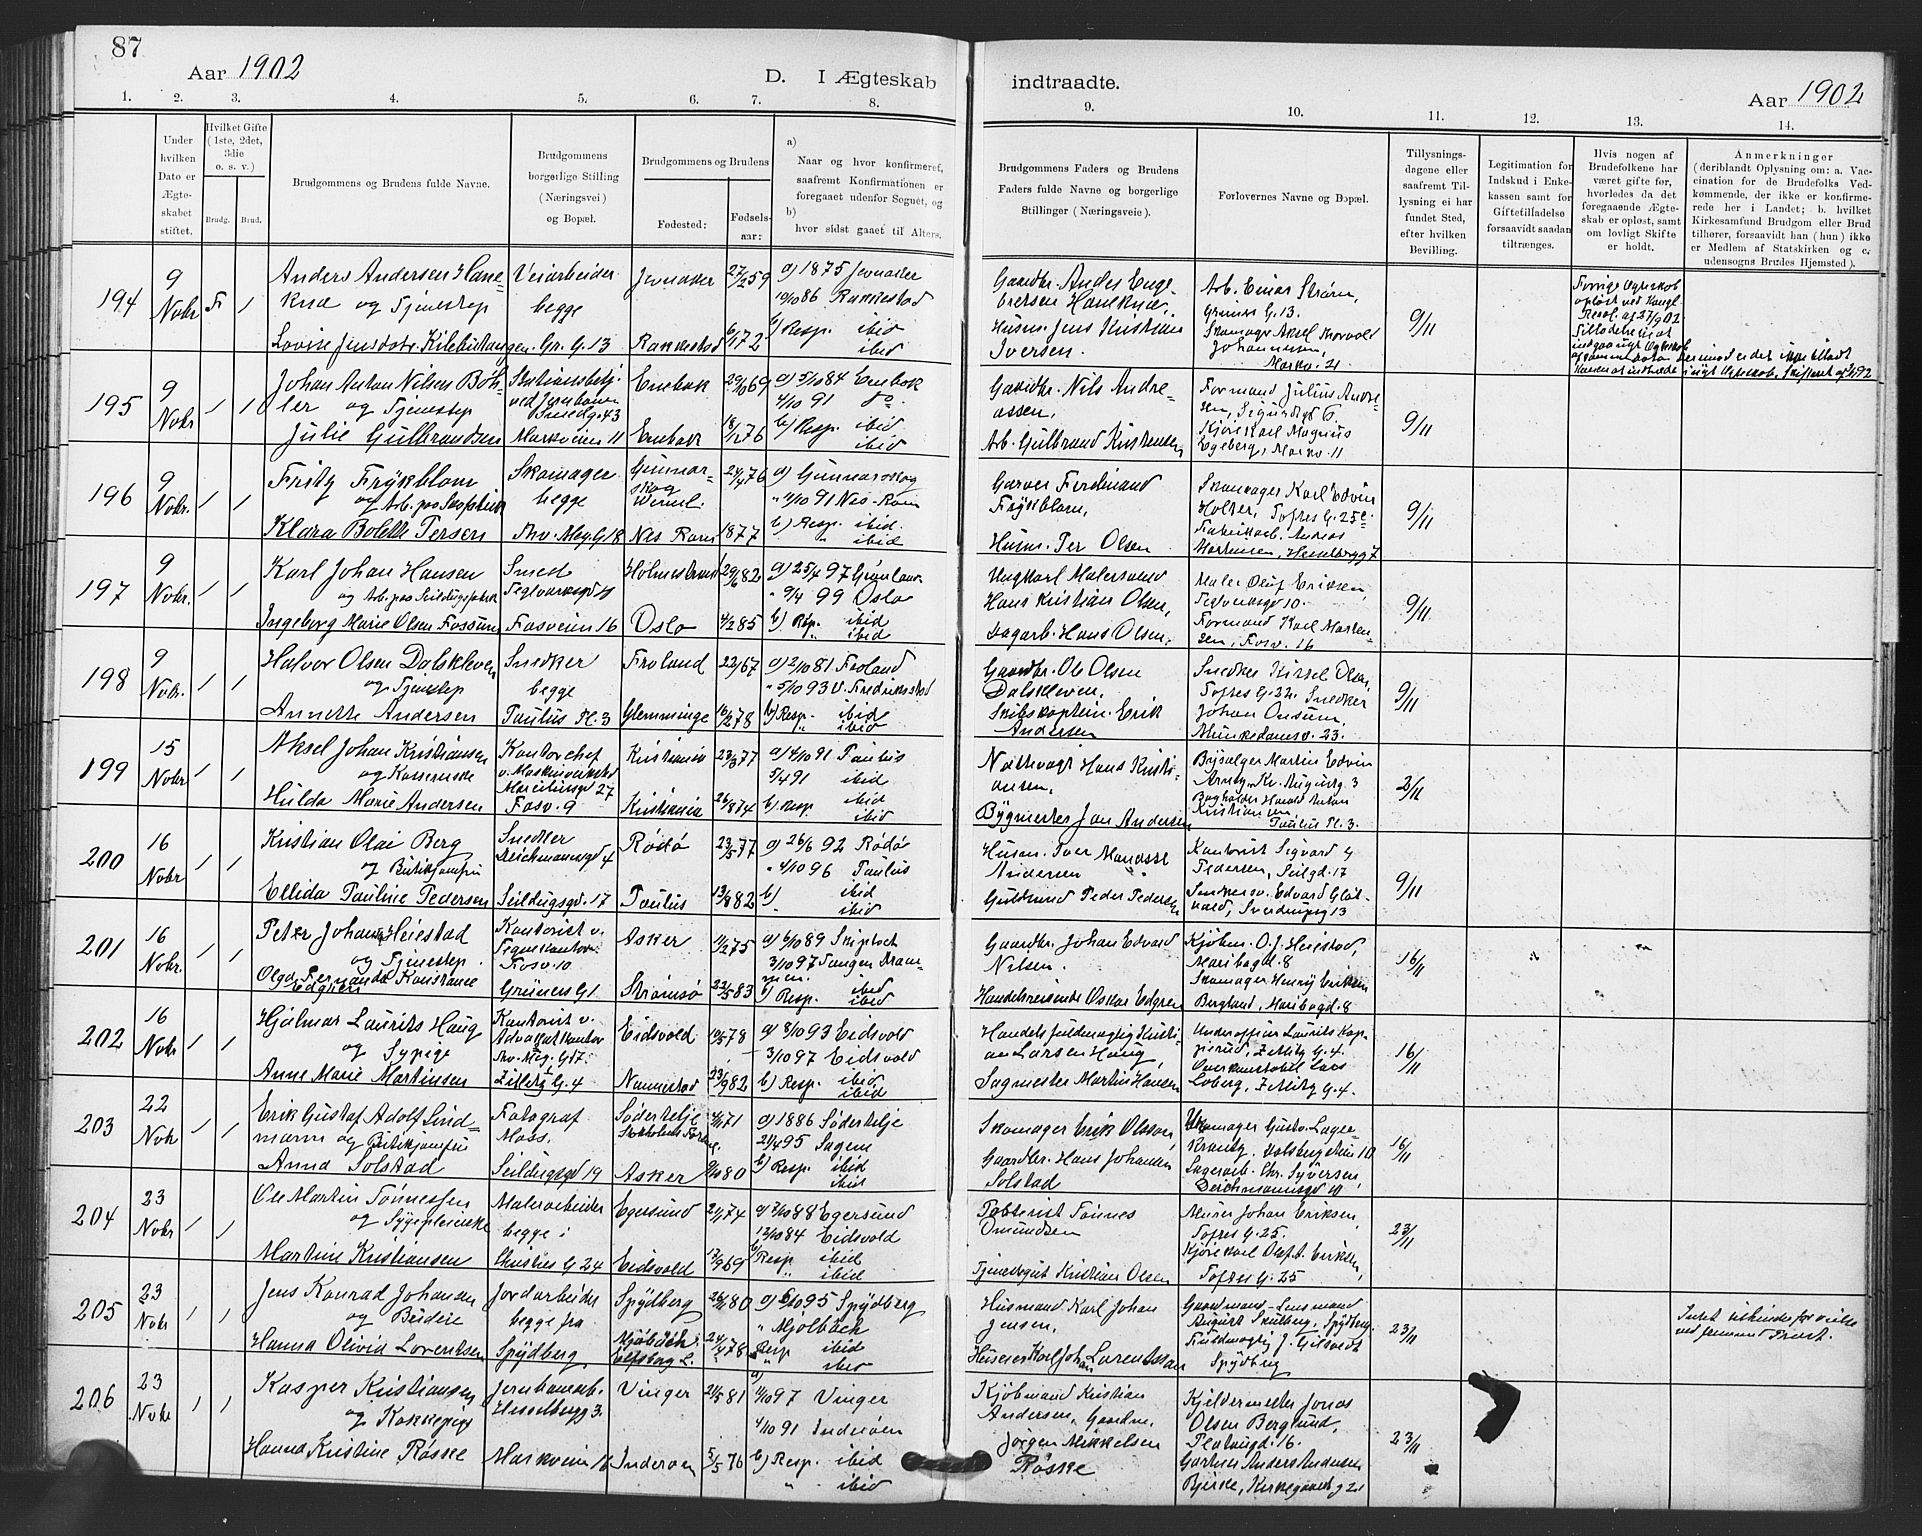 87
Aar 1902
D. I Ægteskab
indtraadte.
Aar 1902
1. 2. 3. 4. 5. 6. 7. 8.
9. 10. 11. 12. 13. 14.
Under hvilken Dato er Ægteskabet stiftet.
Hvilket Gifte (1ste, 2det, 3die o. s. v.)
Brudg. Brud.
Brudgommens og Brudens fulde Navne.
Brudgommens borgerlige Stilling (Næringsvei) og Bopæl.
Brudgommens og Brudens
Fødested:
Fødselsaar:
a) Naar og hvor konfirmeret, saafremt Konfirmationen er foregaaet udenfor Sognet, og
b) hvor sidst gaaet til Alters.
Brudgommens Faders og Brudens Faders fulde Navne og borgerlige Stillinger (Næringsveie).
Forlovernes Navne og Bopæl.
Tillysningsdagene eller saafremt Tillysning ei har fundet Sted, efter hvilken Bevilling.
Legitimation for Indskud i Enkekassen samt for Giftetilladelse forsaavidt saadan tiltrænges.
Hvis nogen af Brudefolkene har været gifte før, hvorledes da det foregaaende Ægteskab er opløst, samt om lovligt Skifte er holdt.
Anmerkninger (deriblandt Oplysning om: a. Vaccination for de Brudefolks Vedkommende, der ikke er konfirmerede her i Landet; b. hvilket Kirkesamfund Brudgom eller Brud tilhører, forsaavidt han (hun) ikke er Medlem af Statskirken og c. udensogns Brudes Hjemsted).
194 9 Novbr
Anders Andersen
og Tjenestep
Veiarbeider
begge
Gr. G. 13
Jevnaker 27/2 59
Rakkestad 6/1 72
a) 1875 Jevnaker
10/10 86 Rakkestad
b) Resp. ibid
ibid
Gaardbr. Anders
Husm. Jens Kristian
Iversen.
Arb. Einar Strøm,
Grüners G. 13.
Markv. 21
9/11
195 9 Novbr
Johan Anton Nilsen Bøhler og Tjenestep
Julie Gulbrandsen
Markveien 11
Enebak 29/10 69
Enebak 18/12 76
a) 5/10 84 Enebak
4/10 91 do.
b) Resp. ibid
ibid
Gaardbr. Nils Andreassen.
Arb. Gulbrand Kristensen
Formand Julius Andresen,
Kjørekarl Magnus
Egeberg, Markv. 11
9/11
196 9 Novbr.
Fritz Frykblom
Klara Bolette Persen
Skomager
begge
Thv. Meg. G 18
Gunnarskog
Nes Rom. 1877
a) Gunnarskog
4/10 91 Nes-Rom
b) Resp. ibid.
ibid
Garver Ferdinand
Frykblom,
Husm. Per Olsen
Skomager Karl Edvin
Holter, Toftes G. 25
Fabrikarb. Andreas
Mortensen, Hesselbergg 7
9/11
197 9 Novbr.
Karl Johan Hansen
og Arb. paa Seildugsfabrik
Ingeborg Marie Olsen Fossum
Smed
Fosveien 16
Holmestrand 29/6 82
Oslo 4/2 85
a) 25/4 97
9/4 99 Oslo
b) Resp. ibid
ibid
Ungkarl Malersvend
Hans Kristian Olsen,
Dagarb. Hans Olsen.
Maler Oluf Eriksen,
Teglverksgd 10.
Formand Karl Mortensen, Fosv. 16
9/11
198 9 Novbr.
Halvor Olsen Dalskleven
og Tjenestep
Annette Andersen
Snedker
begge
Paulus Pl. 3
Froland
Glemminge 16/2 78
a) 2/10 81 Froland
5/10 93 V. Fredriksstad
b) Resp. ibid
ibid
Gaardbr. Ole Olsen
Dalskleven.
Skibskaptein Erik
Andersen
Toftes G. 22. Snedker
Johan
Munkedamsv. 23.
9/11
199 15 Novbr
Aksel Johan Kristiansen
og Kasserske
Hulda Marie Andersen
Kontorchef
Fosv. 9
Kristiania 23/9 77
Kristiania 26/8 74
a) 4/10 91 Paulus
5/4 91 ibid
b) Resp ibid
ibid
Nattevagt Hans Kristiansen.
Bygmester Jan Andersen
Bogholder Harald Anton
Kristiansen
Paulus Pl. 3.
2/11
200 16 Novbr
Kristian Olai Berg
og Butikjomfru
Ellida Pauline Pedersen
Snedker
Deichmansgd 4
Seildugsgd. 17
Rödö 23/5 77
Paulus 13/8 82
a) 26/6 92 Rödö
4/10 96 Paulus
b) ibid
ibid
Husm. Iver
Andersen
Guldsmed Peder Pedersen
Kontorist Sigvard
Pedersen, Seilgd. 17
Snedkersv. Edvard
Sverdrupsg 13
9/11
201 16 Novbr.
Peter Johan Heiestad
og Tjenestep.
Olga Fernanda Konstance
Edgren
Kontorist v.
Tegnekontor
Fosv. 10
Grüners G 1
Asker 1/2 75
Strömsö 22/5 83
a) 6/10 89 Skiptvet
3/10 97 Tangen Drammen.
b) Resp. ibid
ibid
Gaardbr. Johan Edvard
Nilsen.
Handelsreisende Oskar Edgren
Kjøbm. O. J. Heiestad,
Maribogd. 8
Skomager Henry Eriksen
Bergland, Maribogd. 8
16/11
202 16 Novbr
Hjalmar Laurits Haug
og Sypige
Anne Marie Martinsen
Kontorist v.
Advokatkontor
Thv. Meg. G 17.
Zetlitz G. 4
Eidsvold 10/5 78
Nannestad 23/9 82
a) 8/10 93 Eidsvold
3/10 97 Eidsvold
b) Resp. ibid
ibid
Handelsfuldmægtig Kristian Larsen Haug,
Sagmester Martin Hansen
Underofficer Laurits Kopperud, Zetlitz G. 4.
Overkonstabel Lars
Loberg, Zetlitz G. 4.
16/11
203 22 Nobr
Erik Gustaf Adolf Lindmann og Butikjomfru
Anna Solstad
Fotograf
Moss.
Seildugsgd 19
Södertelje 4/1 71
Asker 9/10 80
a) 1886 Södertelje
2/4 95 Sagene
b) Resp. ibid
ibid
Skomager Erik Olsson,
Gaardbr. Hans Johansen
Solstad
Lagerarb. Chr. Syversen,
Deichmannsgd 10
16/11
204 23 Novbr
Ole Martin Tönnessen
og Sygepleierske
Martine Kristiansen
Malerarbeider
begge i
Christies G 24
Egersund 2/1 74
Eidsvold 17/9 69
a) 7/10 88 Egersund
12/10 84 Eidsvold
b) Resp ibid
ibid
Tönnes
Omundsen
Tjenestegut Kristian Olsen
Murer Johan Eriksen,
Toftes G. 25.
Kjørekarl Olaf A. Eriksen,
Toftes G. 25
23/11
205 23 Novbr
Jens Konrad Johansen
og Budeie
Hanna Olivia Lorentsen
Jordarbeider
begge fra
Spydberg
Spydberg 26/1 80
Mjöbäck
Elfsborg L. 24/4 78
a) 6/10 95 Spydberg
Mjölbäck
Resp ibid
ibid
Husmand Karl Johan
Jensen.
Karl Johan Lorentsson
Gaardmand-Lensmand
August Skulberg, Spydberg
Fuldmægtig J. Gilsvedt
Spydberg
23/11
206 23 Nobr
Kasper Kristiansen
og Kokkepige
Hanna Kristine Røske
Jernbanearb.
Hesselbergg 3.
Markveien 16
Vinger 21/5 81
Inderøen 5/5 76
a) 4/10 97 Vinger
4/10 91 Inderøen
b) Resp. ibid
ibid
Kjöbmand Kristian
Andersen, Gaardm.
Jørgen Mikkelsen
Røske
Kjeldermester Jonas
Olsen Berglund,
Gartner Anders Andersen
Bjerke, Kirkegaardsg 21
23/11